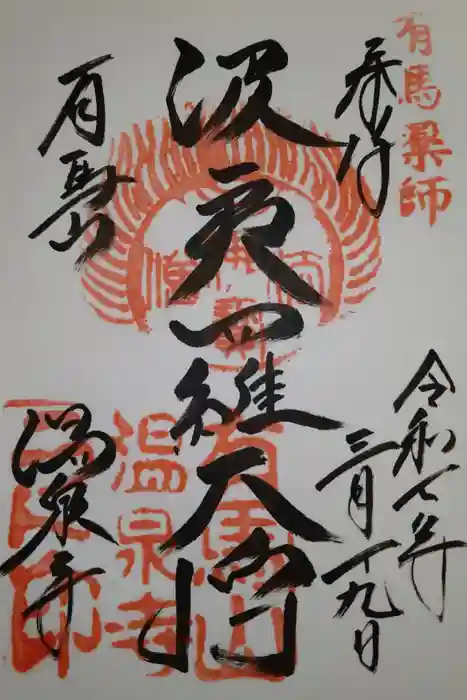 有馬薬師
奉拝
令和七年
三月十九日
波夷羅大将
有馬山
温泉寺
有馬山
温泉寺